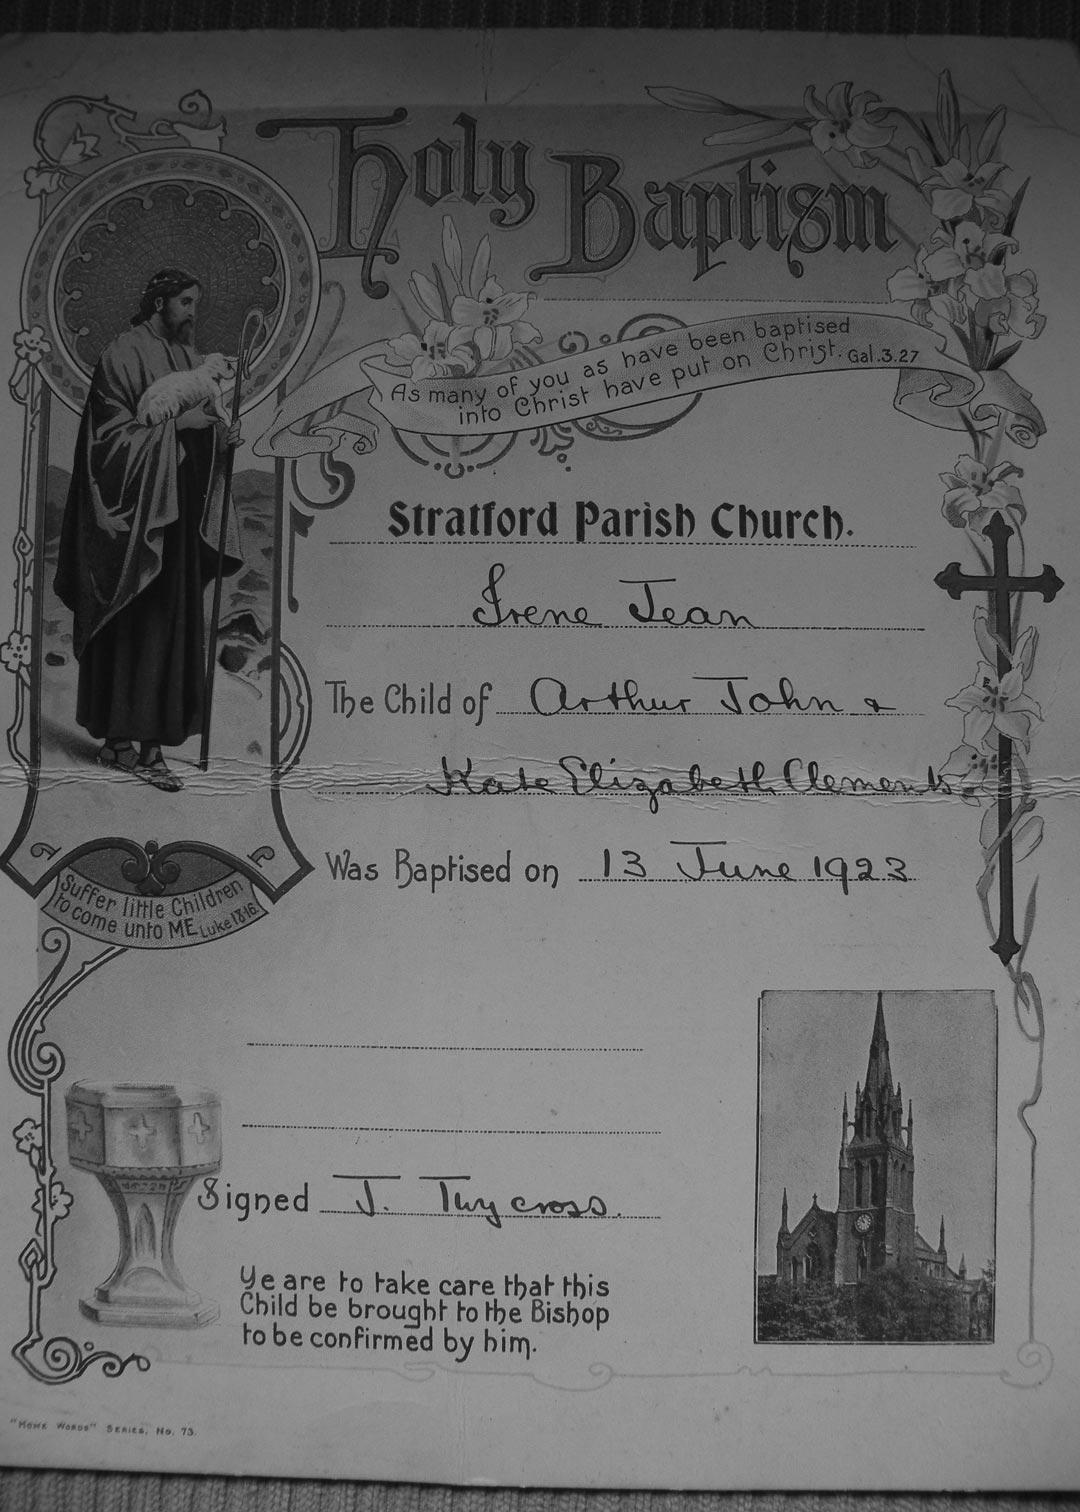 Holy Baptism
As many of you as have been baptised
into Christ have put on Christ. Gal. 3. 27
Stratford Parish Church.
Irene Jean
The Child of Arthur John &
Kate Elizabeth Clements
Was Baptised on 13 June 1923
Suffer little Children
to come unto ME Luke 18·16.
Signed J. Twycross.
Ye are to take care that this
Child be brought to the Bishop
to be confirmed by him.
"Home Words" Series, No. 73.